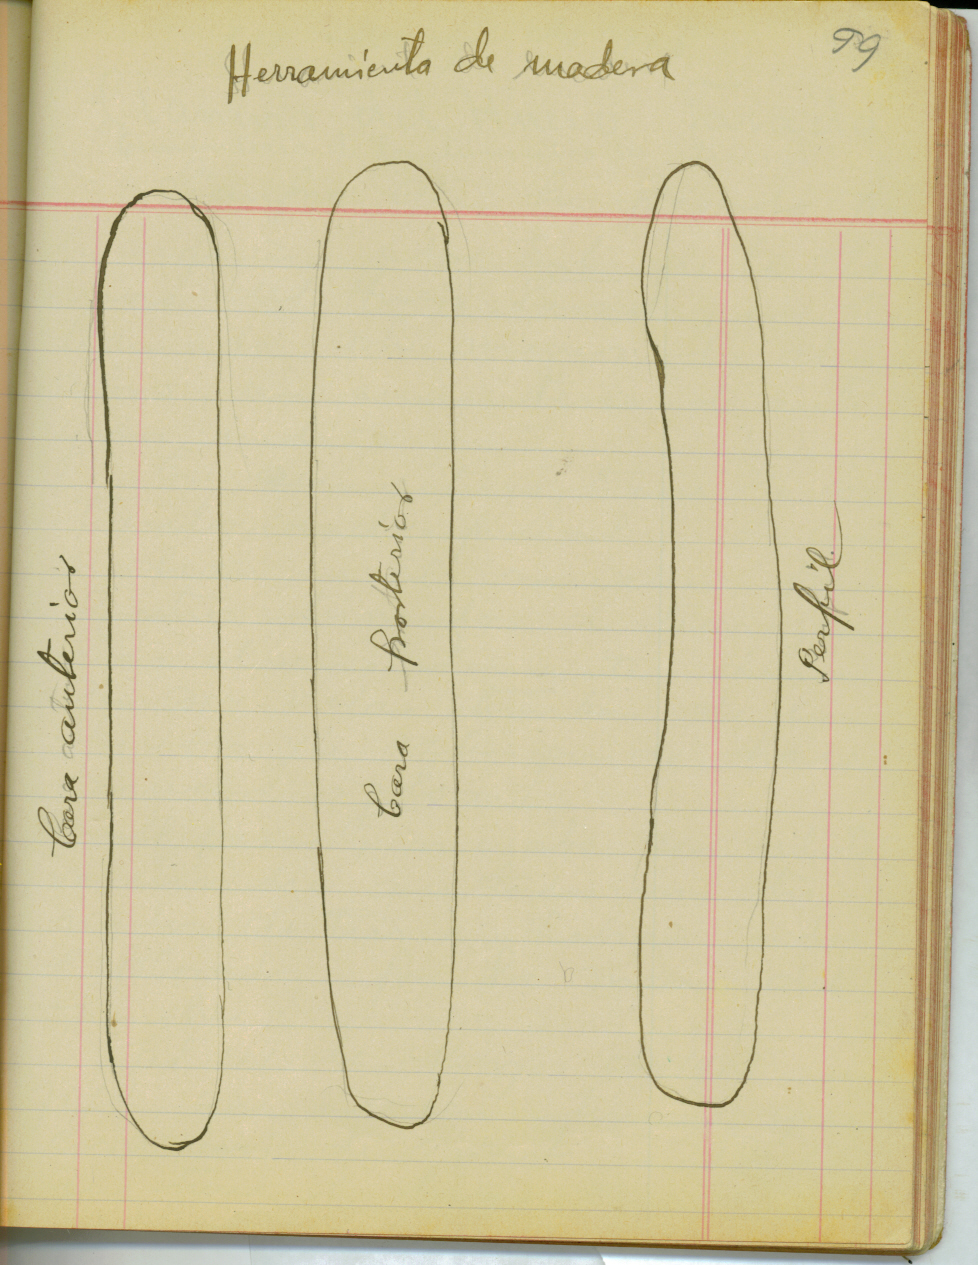 99
Herramienta de madera
Cara anterior
Cara posterior
Perfil